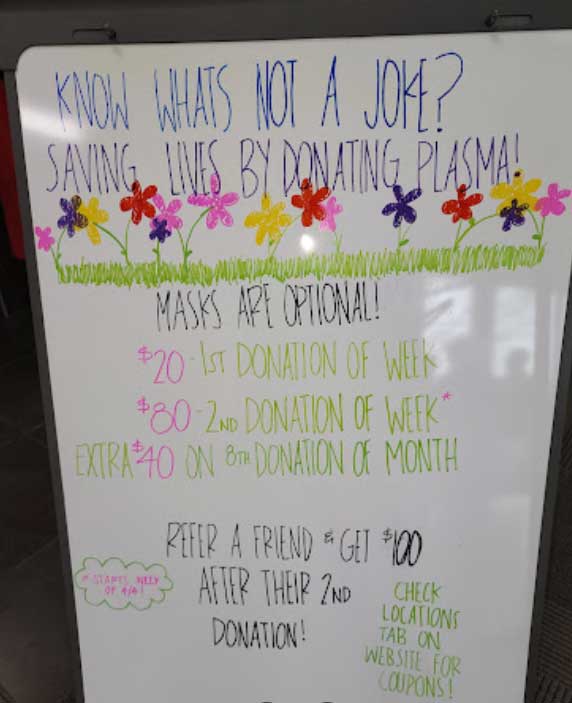 KNOW WHATS NOT A JOKE?
SAVING LIVES BY DONATING PLASMA!
MASKS ARE OPTIONAL!
$20 - 1ST DONATION OF WEEK
$80 - 2ND DONATION OF WEEK*
EXTRA $40 ON 8TH DONATION OF MONTH
REFER A FRIEND & GET $100
AFTER THEIR 2ND
DONATION!
* STARTS WEEK
OF 4/4!
CHECK
LOCATIONS
TAB ON
WEBSITE FOR
COUPONS!